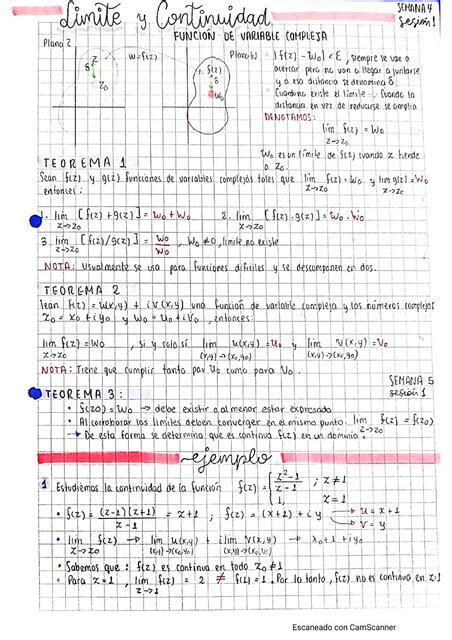 Límite y Continuidad
SEMANA 4
Sesión 1
FUNCIÓN DE VARIABLE COMPLEJA
Plano Z
w=f(z)
Plano W
z
δ
z₀
f(z)
W₀
|f(z) - W₀| < ε, siempre se van a
acercar pero no van a llegar a juntarse
y a esa distancia se denomina δ.
Cuando no existe el límite → Cuando la
distancia en vez de reducirse se amplía
DENOTAMOS:
lim f(z) = W₀
z→z₀
W₀ es un límite de f(z) cuando z tiende
a z₀.
TEOREMA 1
Sean f(z) y g(z) funciones de variables complejas tales que lim f(z) = W₀ y lim g(z) = W₀
z→z₀ z→z₀
entonces:
1. lim [f(z) + g(z)] = W₀ + W₀ 2. lim [f(z) · g(z)] = W₀ · W₀
z→z₀ z→z₀
3. lim [f(z)/g(z)] = W₀/W₀, W₀ ≠ 0, límite no existe
z→z₀
NOTA: Usualmente se usa para funciones difíciles y se descomponen en dos.
TEOREMA 2
Sean f(z) = u(x,y) + i v(x,y) una función de variable compleja y los números complejos
z₀ = x₀ + i y₀ y W₀ = U₀ + i V₀, entonces:
lim f(z) = W₀, si y solo si lim u(x,y) = U₀ y lim v(x,y) = V₀
z→z₀ (x,y)→(x₀,y₀) (x,y)→(x₀,y₀)
NOTA: Tiene que cumplir tanto par U₀ como para V₀.
SEMANA 5
sesión 1
TEOREMA 3:
• f(z₀) = W₀ → debe existir o al menor estar expresado
• Al corroborar los límites deben converger en el mismo punto. lim f(z) = f(z₀)
z→z₀
→ De esta forma se determina que es continua f(z) en un dominio.
ejemplo
1 Estudiemos la continuidad de la función f(z) = { z²-1/z-1 ; z≠1
1, z=1
• f(z) = (z-1)(z+1)/z-1 = z+1 ; f(z) = (x+1) + iy → u = x+1
→ v = y
• lim f(z) → lim u(x,y) + i lim v(x,y) → x₀+1 + iy₀
z→z₀ (x,y)→(x₀,y₀) (x,y)→(x₀,y₀)
• Sabemos que: f(z) es continua en todo z₀≠1
• Para z=1, lim f(z) = 2 ≠ f(1) = 1. Por lo tanto, f(z) no es continua en z=1
z→1
Escaneado con CamScanner